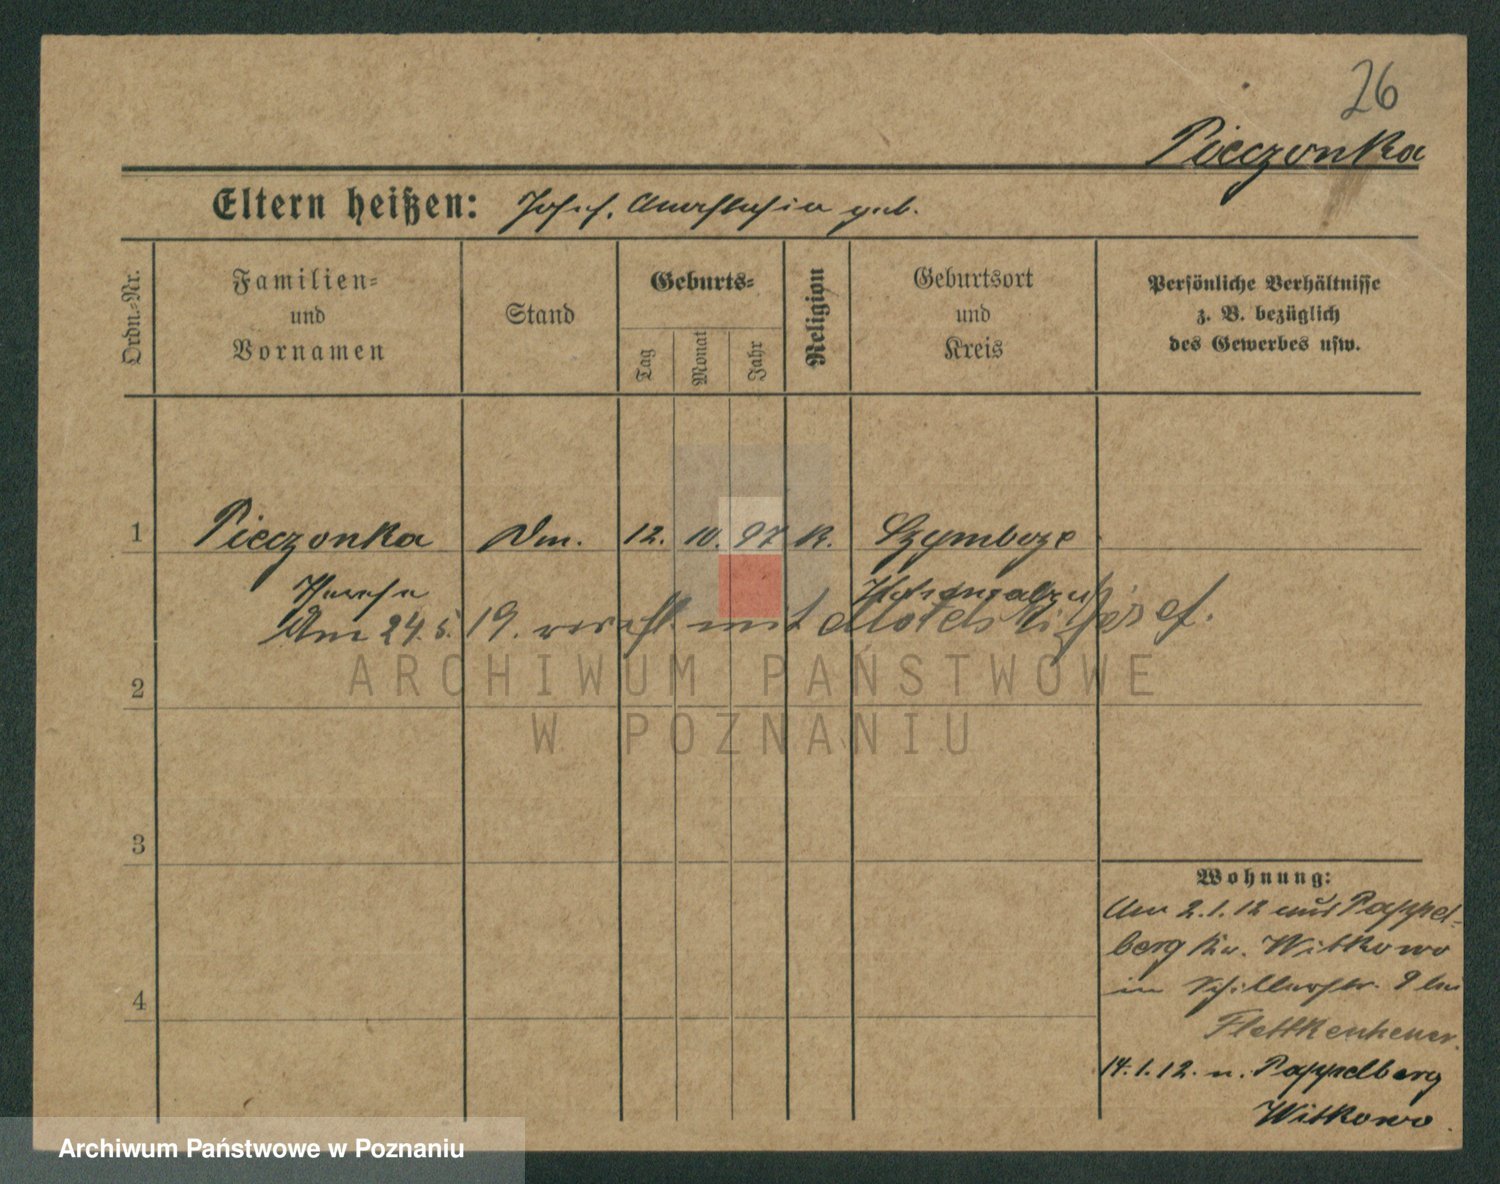 26
Pieczonka
Eltern heißen: Josef, Anastasia geb.
Ordn.-Nr.
Familien-
und
Vornamen
Stand
Geburts-
Tag
Monat
Jahr
Religion
Geburtsort
und
Kreis
Persönliche Verhältnisse
z. B. bezüglich
des Gewerbes usw.
1 Pieczonka Dm. 12. 10. 97 K. Szymborze
Hohensalza
Am 24.5.19. mit Josef.
2
ARCHIWUM PAŃSTWOWE
W POZNANIU
3
Wohnung:
Am 2.1.12 aus Pappel-
berg Kr. Witkowo
in Schillerstr. 9 bei
4
14.1.12. n. Pappelberg
Witkowo.
Archiwum Państwowe w Poznaniu